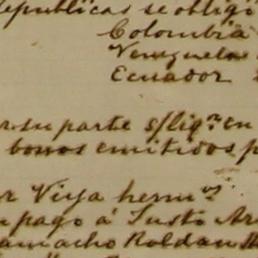 Republicas se obligó
Colombia
Venezuela
Ecuador
su parte s/liqn en
bonos emitidos p
Viya hermos
pago á Justo Ar
amacho Roldan